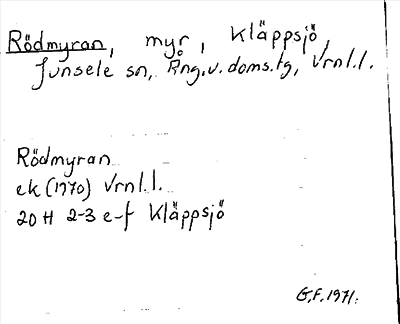 Rödmyran, myr, Kläppsjö,
Junsele sn, Ång.v. doms.tg, Vrnl.l.
Rödmyran
ek (1970) Vrnl.l.
20 H 2-3 e-f Kläppsjö
G.F. 1971.